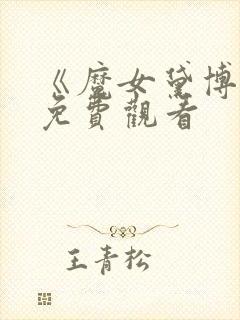 《魔女黛博
免費觀看
王青松